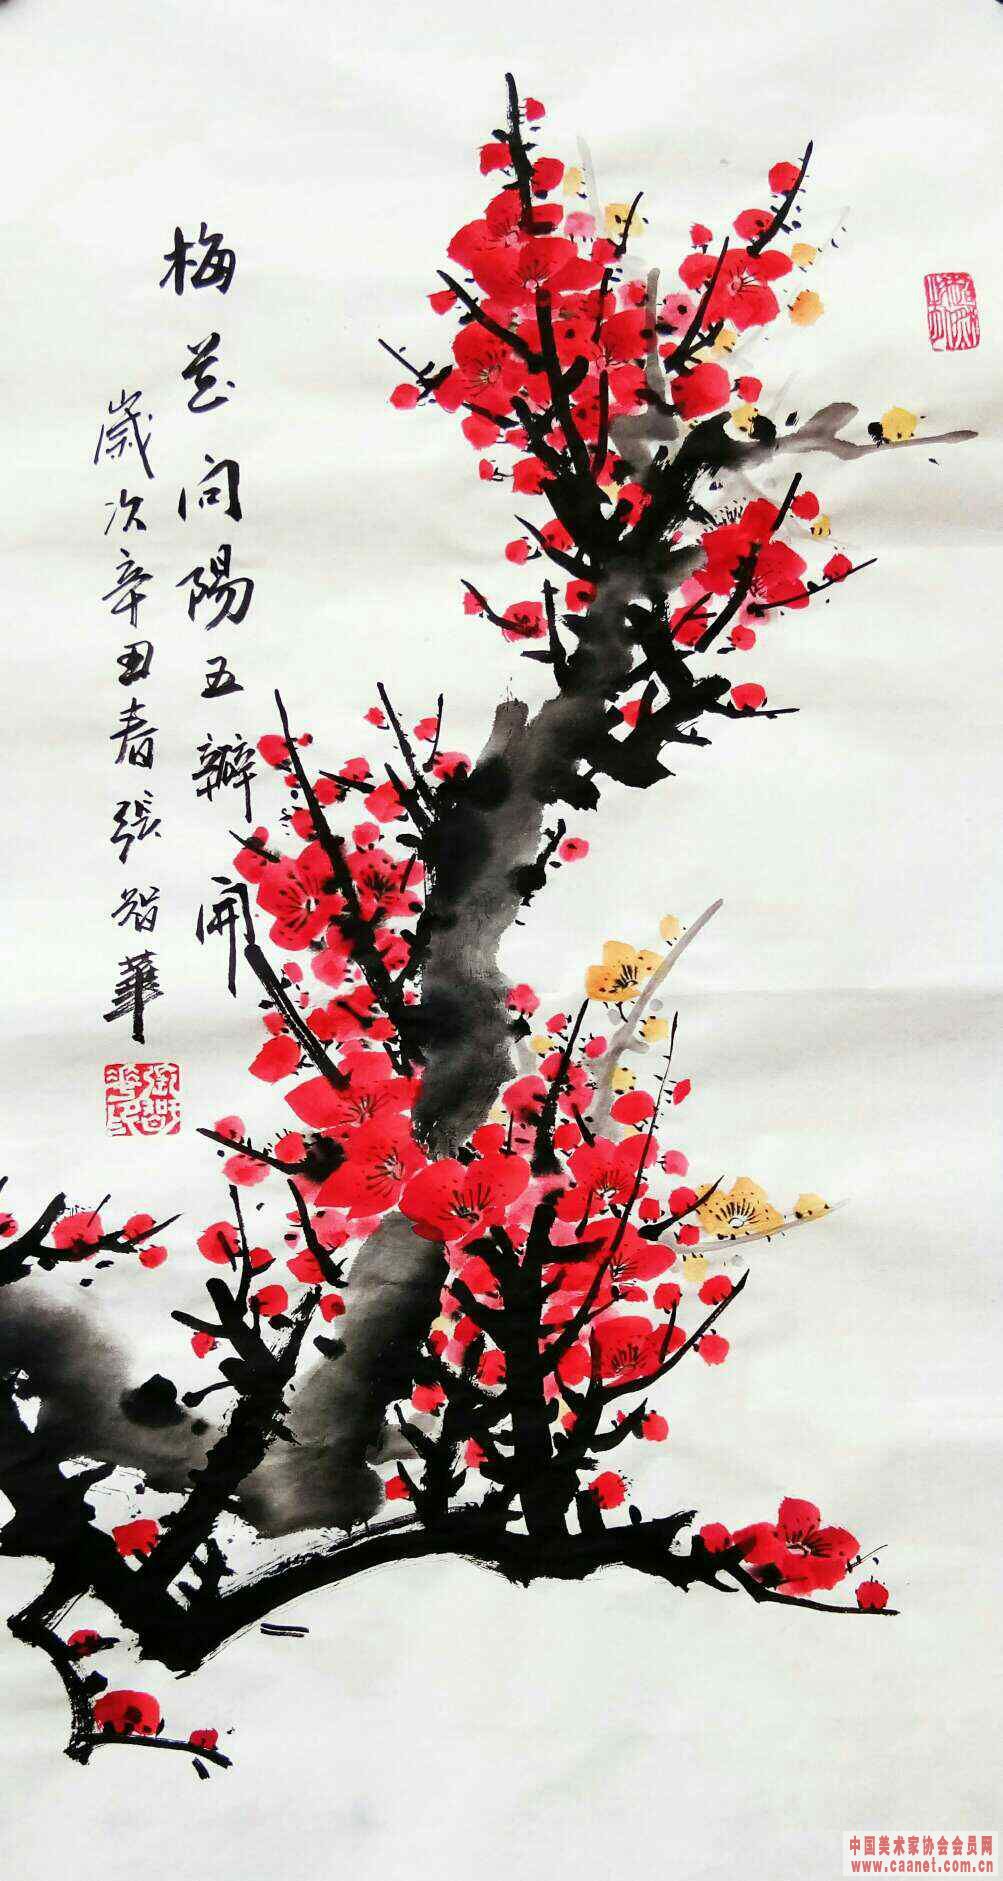 梅花向陽五瓣開
歲次辛丑春張智華
張智華印
中国美术家协会会员网
www.caanet.com.cn